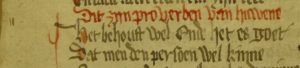 Dit zyn proverben van huevene
Het behouft wel ende het es goet
Dat men den persoen wel kinne